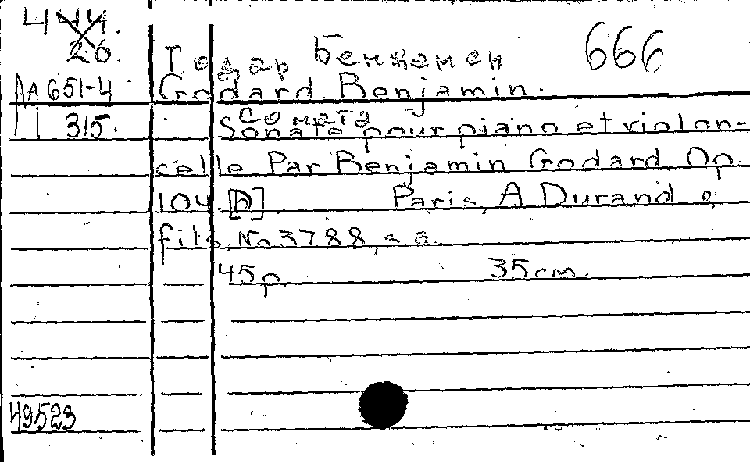 444.
26.
Годар Бенжамен 666
M 651-4 Godard Benjamin.
315.
Соната
Sonate pour piano et violon-
celle Par Benjamin Godard Op.
104 [D] Paris, A Durand &
fils, No 3788, s a.
45 p. 35 cm.
49523